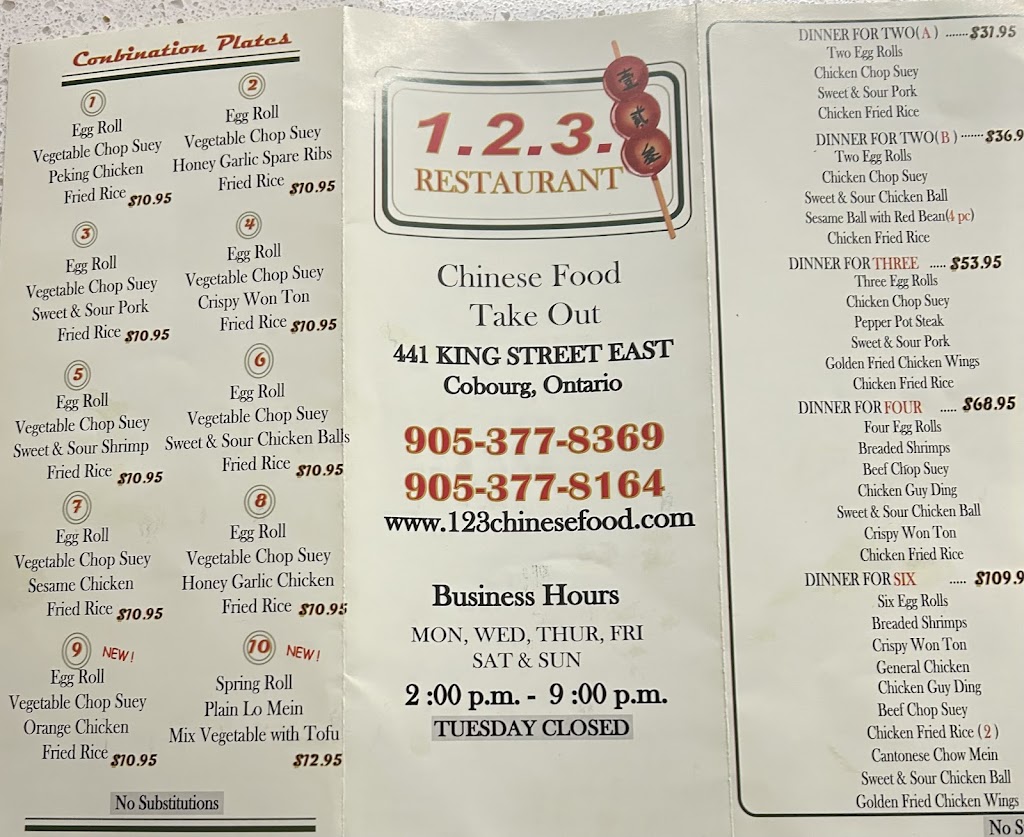 Conbination Plates
1
Egg Roll
Vegetable Chop Suey
Peking Chicken
Fried Rice $10.95
2
Egg Roll
Vegetable Chop Suey
Honey Garlic Spare Ribs
Fried Rice $10.95
3
Egg Roll
Vegetable Chop Suey
Sweet & Sour Pork
Fried Rice $10.95
4
Egg Roll
Vegetable Chop Suey
Crispy Won Ton
Fried Rice $10.95
5
Egg Roll
Vegetable Chop Suey
Sweet & Sour Shrimp
Fried Rice $10.95
6
Egg Roll
Vegetable Chop Suey
Sweet & Sour Chicken Balls
Fried Rice $10.95
7
Egg Roll
Vegetable Chop Suey
Sesame Chicken
Fried Rice $10.95
8
Egg Roll
Vegetable Chop Suey
Honey Garlic Chicken
Fried Rice $10.95
9 NEW!
Egg Roll
Vegetable Chop Suey
Orange Chicken
Fried Rice $10.95
10 NEW!
Spring Roll
Plain Lo Mein
Mix Vegetable with Tofu
$12.95
No Substitutions
1.2.3.
RESTAURANT
壹
貳
Chinese Food
Take Out
441 KING STREET EAST
Cobourg, Ontario
905-377-8369
905-377-8164
www.123chinesefood.com
Business Hours
MON, WED, THUR, FRI
SAT & SUN
2 :00 p.m. - 9 :00 p.m.
TUESDAY CLOSED
DINNER FOR TWO(A) .......$31.95
Two Egg Rolls
Chicken Chop Suey
Sweet & Sour Pork
Chicken Fried Rice
DINNER FOR TWO(B) .......$36.9
Two Egg Rolls
Chicken Chop Suey
Sweet & Sour Chicken Ball
Sesame Ball with Red Bean(4 pc)
Chicken Fried Rice
DINNER FOR THREE ..... $53.95
Three Egg Rolls
Chicken Chop Suey
Pepper Pot Steak
Sweet & Sour Pork
Golden Fried Chicken Wings
Chicken Fried Rice
DINNER FOR FOUR ..... $68.95
Four Egg Rolls
Breaded Shrimps
Beef Chop Suey
Chicken Guy Ding
Sweet & Sour Chicken Ball
Crispy Won Ton
Chicken Fried Rice
DINNER FOR SIX ..... $109.9
Six Egg Rolls
Breaded Shrimps
Crispy Won Ton
General Chicken
Chicken Guy Ding
Beef Chop Suey
Chicken Fried Rice (2)
Cantonese Chow Mein
Sweet & Sour Chicken Ball
Golden Fried Chicken Wings
No S